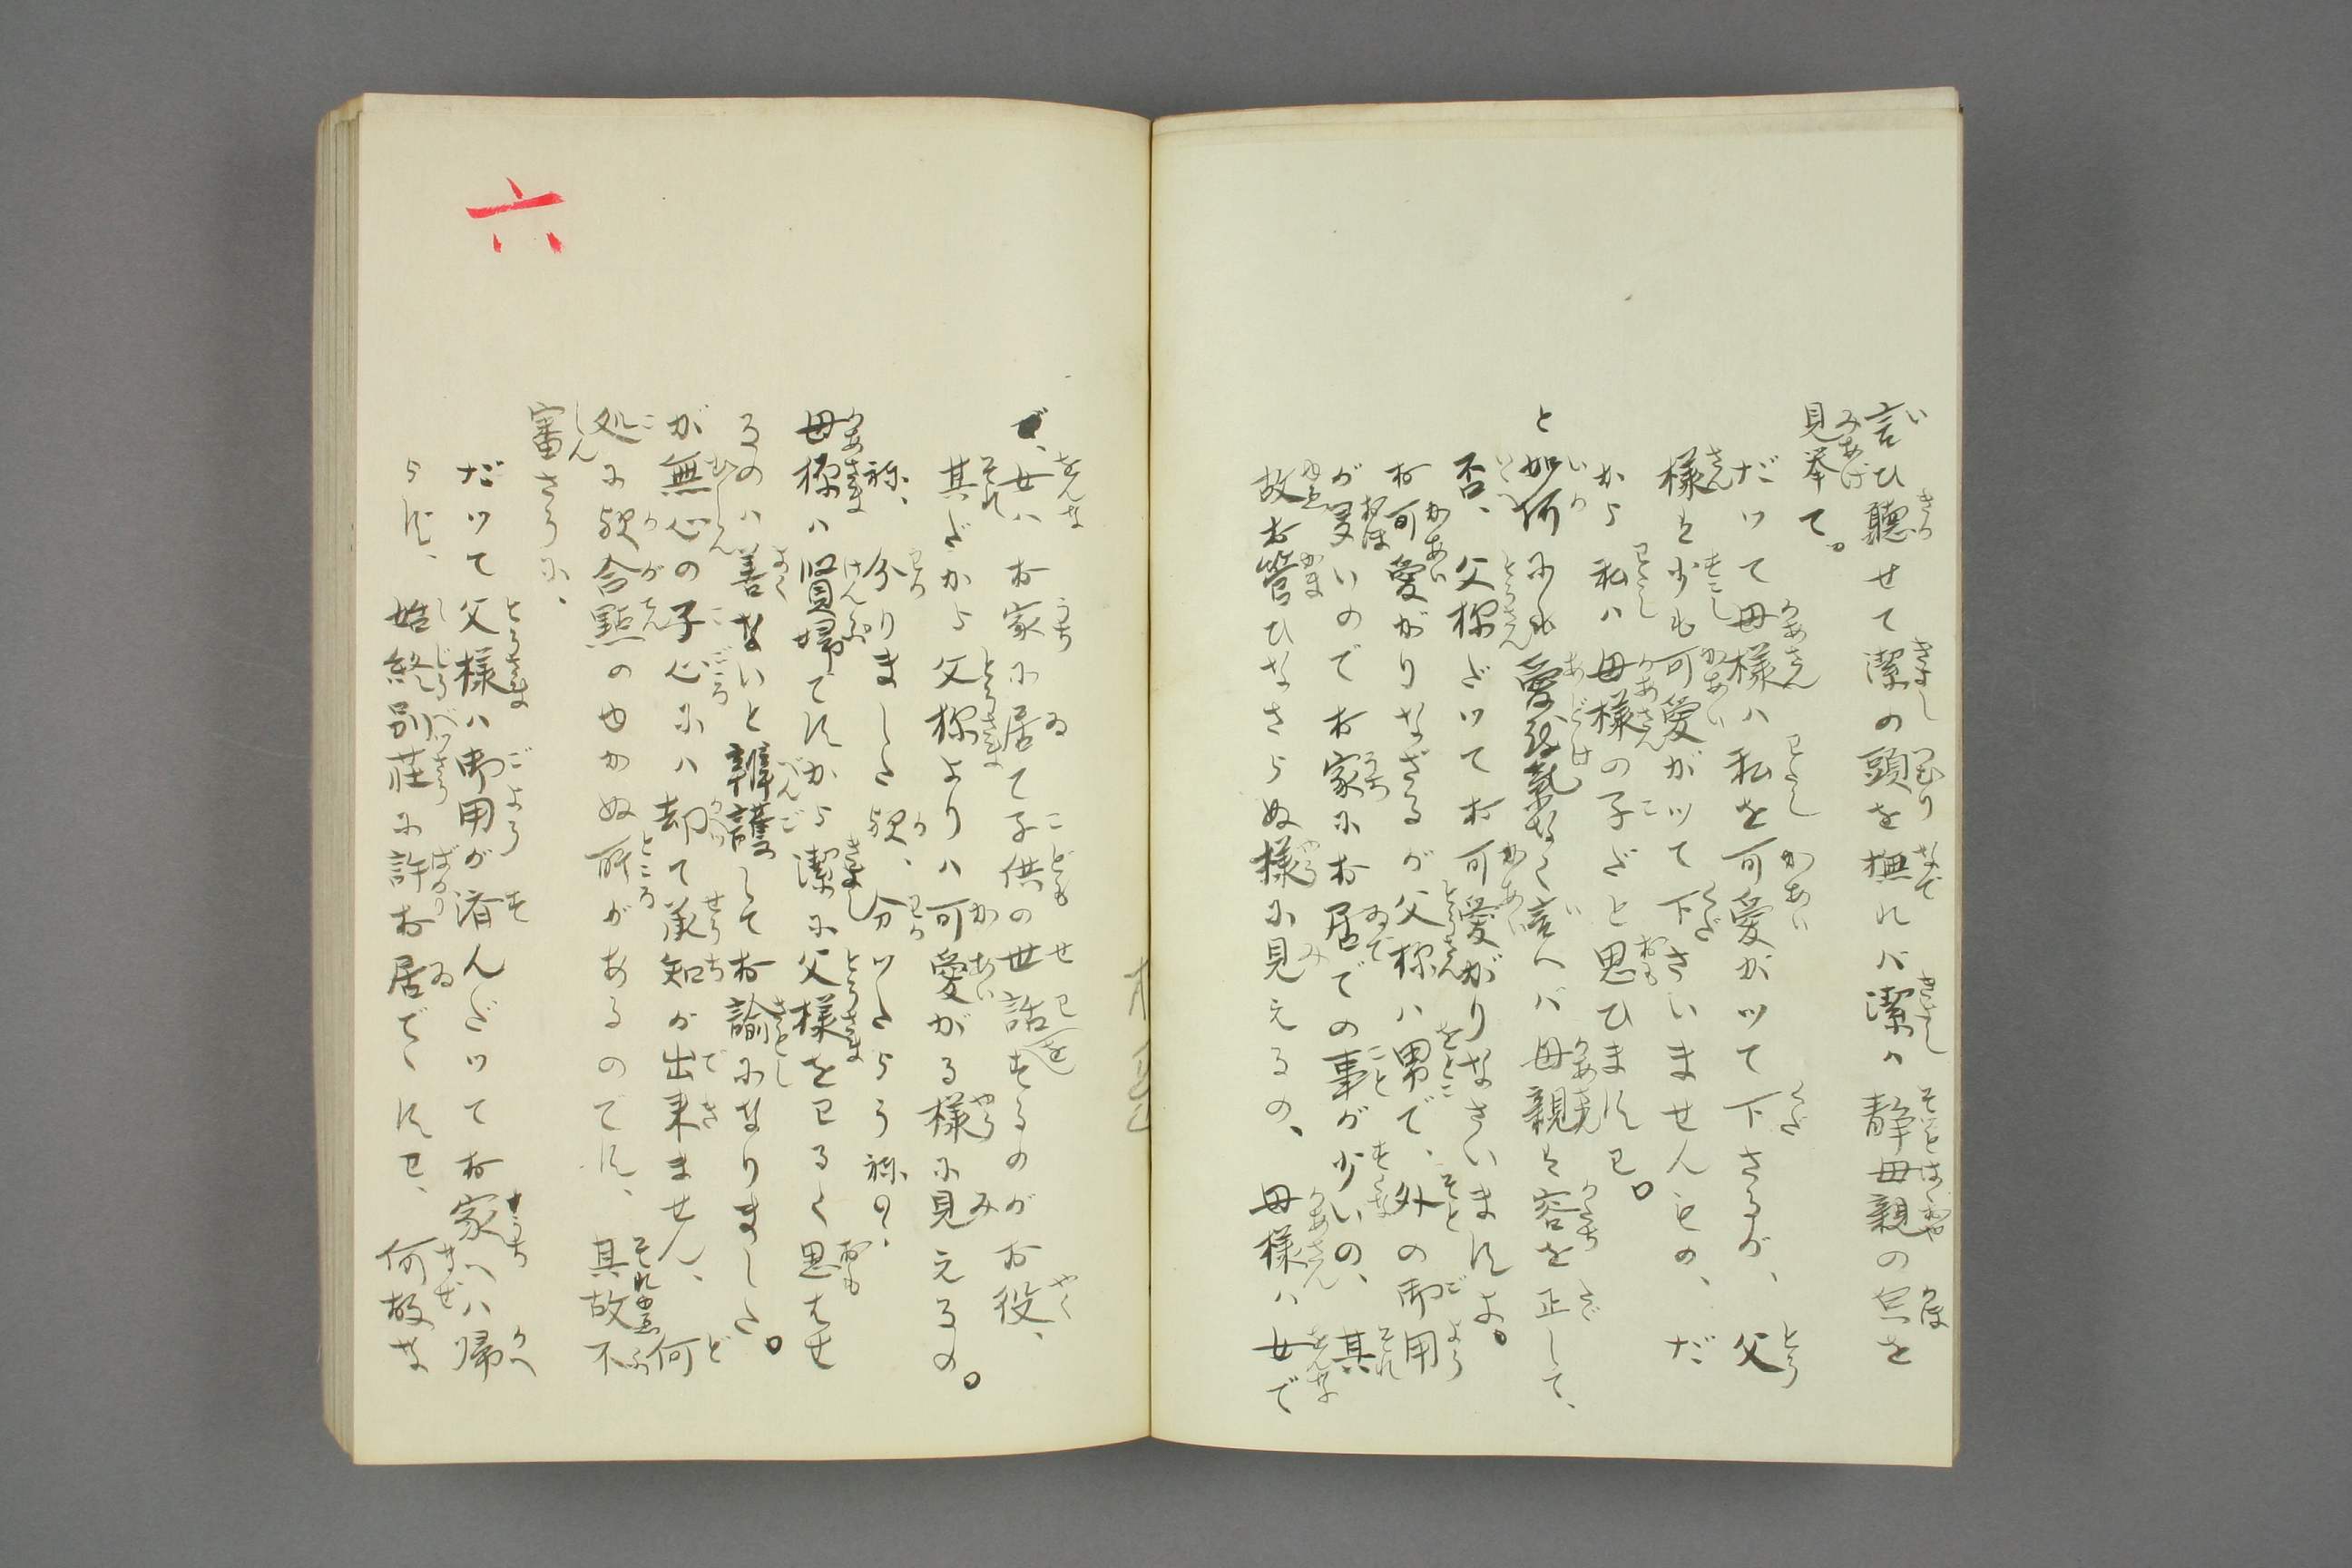 言ひ聴せて潔の頭を撫れバ潔ハ静母親の㒵を
見挙て。
だツて母様ハ私を可愛がツて下さるが、父
様は少も可愛がツて下さいませんもの、だ
から私ハ母様の子だと思ひますワ。
と如何にも愛度氣なく言へバ母親は容を正して、
否、父様だツてお可愛がりなさいますよ。
お可愛がりなさるが父様ハ男で、外の御用
が多いのでお家にお居での事が少いの、其
故お管ひなさらぬ様に見えるの、母様ハ女で
で、女ハお家に居て子供の世話をするのがお役、
其だから父様よりハ可愛がる様に見えるの。
ね、分りました歟、分ツたらうねの、
母様ハ賢婦ですから潔に父様をワるく思はせ
るのハ善くないと辯護してお諭になりました。
が無心の子心にハ却て承知が出来ません、何
処に歟合點のゆかぬ所があるのです、其故不
審さうに、
だツて父様ハ御用が済んだツてお家へハ帰
らず、始終別荘に許お居でゝすワ、何故な
六